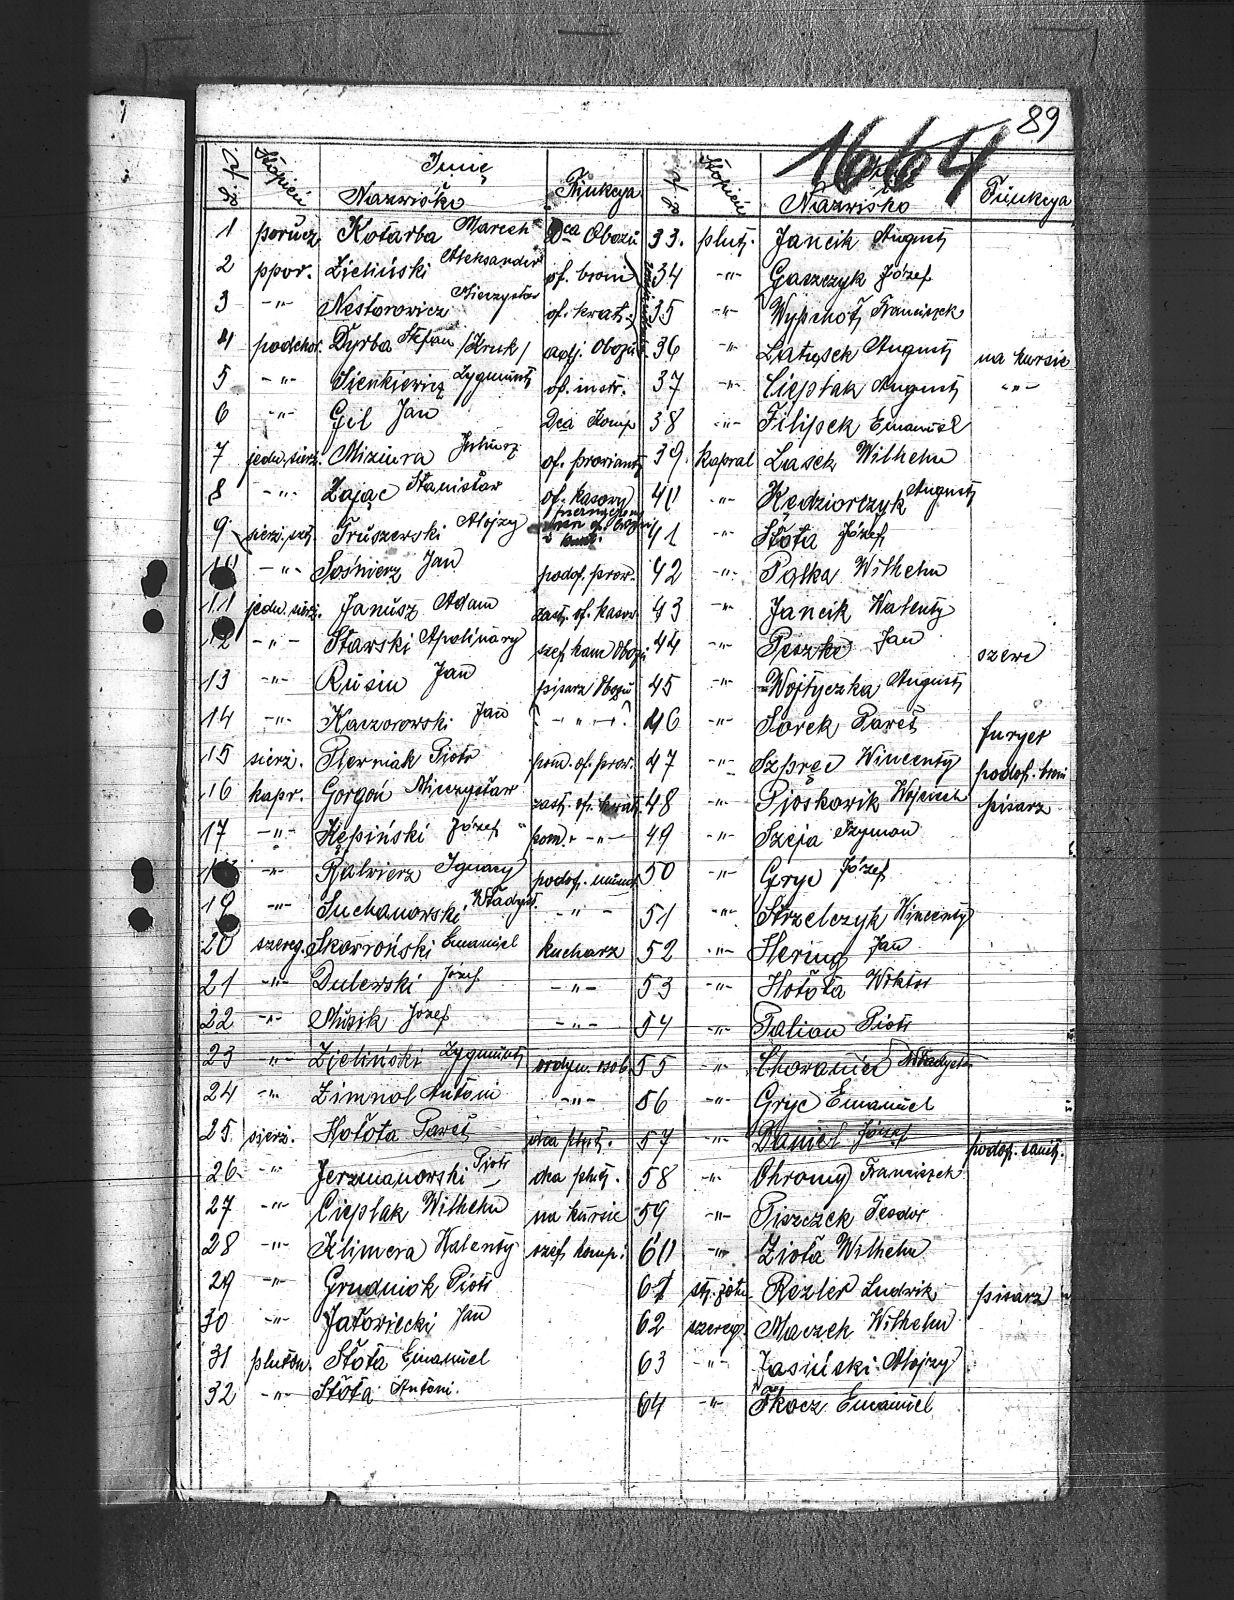 89
1664
L. p. Stopień Imię Nazwisko Funkcya
1 porucz. Kotarba Marceli Dca Obozu
2 ppor. Zieliński Aleksander of. broni
3 -"- Nestorowicz Mieczysław of. kwat.
4 podchor. Dyrba Stefan /Kruk/ adj. Obozu
5 -"- Sienkiewicz Zygmunt of. instr.
6 -"- Gil Jan Dca Komp
7 jedn. sierż. Miziura of. prowiant
8 -"- Zając Stanisław of. kasowy
9 Truszewski Alojzy
10 -"- Sośnierz Jan podof. prow.
11 jedn. sierż. Janusz Adam zast. of. kasow.
12 -"- Starski Apolinary szef kanc Obozu
13 -"- Rusin Jan pisarz Obozu
14 -"- Kaczorowski Jan -"-
15 sierż. Pierniak Piotr pom. of. prow.
16 kapr. Gorgoń Mieczysław zast. of. kwat.
17 -"- Kępiński Józef pom. -"-
18 -"- Ignacy podof. mund.
19 -"- Suchanowski Władysł. -"-
20 szereg. Skowroński Emanuel kucharz
21 -"- Dulewski Józef -"-
22 -"- Józef -"-
23 -"- Zieliński Zygmunt ordyn. osob.
24 -"- Zimnol Antoni -"-
25 sierż. Hołota Paweł dca plut.
26 -"- Jerzmanowski Piotr dca plut.
27 -"- Cieplak Wilhelm na kursie
28 -"- Klimera Walenty szef komp.
29 -"- Grudniok Piotr
30 -"- Jatowiecki Jan
31 pluton. Słota Emanuel
32 -"- Słota Antoni.
L. p. Stopień Nazwisko Funkcya
33. plut. Jancik August
34 -"- Gaszczyk Józef
35 -"- Wypchoł Franciszek
36 -"- Latusek August na kursie
37 -"- Cieplak August -"-
38 -"- Filipek Emanuel
39. kapral Lasek Wilhelm
40 -"- Kędziorczyk August
41 -"- Słota Józef
42 -"- Palka Wilhelm
43 -"- Jancik Walenty
44 -"- Jan szewc
45 -"- Wojtyczka August
46 -"- Sorek Paweł furyer
47 -"- Szpręc Wincenty podof. broni
48 -"- Pioskowik Wojciech pisarz
49 -"- Szeja Szymon
50 -"- Gryc Józef
51 -"- Strzelczyk Wincenty
52 -"- Hering Jan
53 -"- Hołota Wiktor
54 -"- Palion Piotr
55 -"- Chowaniec Władysław
56 -"- Gryc Emanuel
57 -"- Daniel Józef podof. sanit.
58 -"- Chromy Franciszek
59 -"- Piszczek Teodor
60 -"- Zioła Wilhelm
61 Rozler Ludwik pisarz
62 szereg. Maczek Wilhelm
63 -"- Jasiński Alojzy
64 -"- Tkocz Emanuel